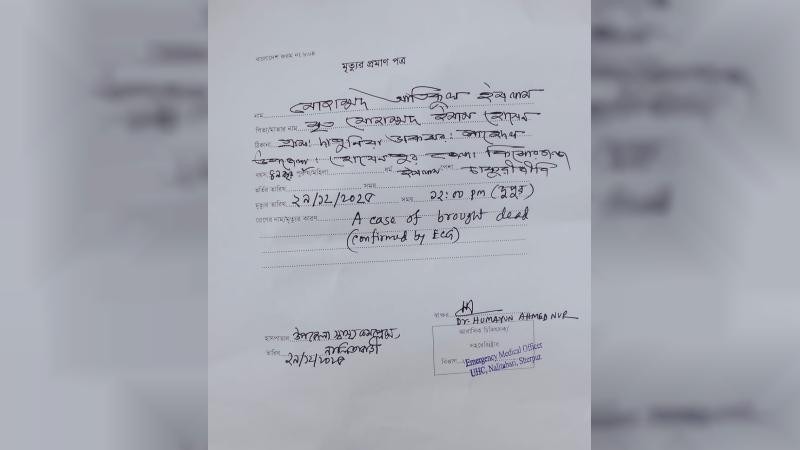 বাংলাদেশ ফরম নং ৮০৪
মৃত্যুর প্রমাণ পত্র
নাম মোহাম্মদ আতিকুল ইসলাম
পিতা/মাতার নাম মৃত মোহাম্মদ ইমাম হোসেন
ঠিকানা গ্রাম: ডাকঘর:
উপজেলা: হোসেনপুর জেলা: কিশোরগঞ্জ
বয়স পুরুষ/মহিলা ধর্ম ইসলাম পেশা চাকুরীজীবি
ভর্তির তারিখ সময়
মৃত্যুর তারিখ ২৯/১২/২০২৫ সময় ১২:০০ pm (দুপুর)
রোগের নাম/মৃত্যুর কারণ A case of brought dead
(confirmed by ECG)
স্বাক্ষর
Dr. HUMAYUN AHMED NUR
হাসপাতাল উপজেলা স্বাস্থ্য কমপ্লেক্স,
নালিতাবাড়ী
তারিখ ২৯/১২/২০২৫
আবাসিক চিকিৎসক/
সহরেজিষ্ট্রার
বিভাগ
Emergency Medical Officer
UHC, Nalitabari, Sherpur.